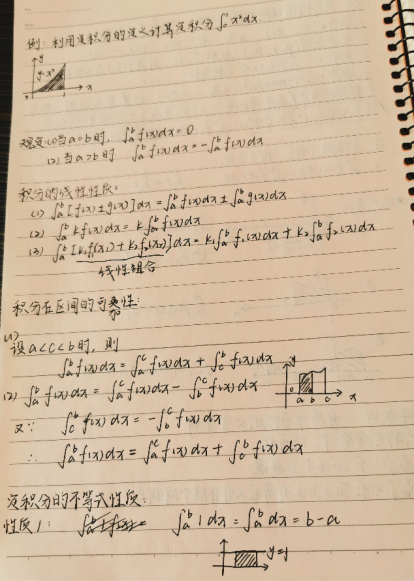 例: 利用定积分的定义计算定积分∫₀¹x²dx.
y
y=x²
0 1 x
规定(1)当a=b时, ∫ₐᵇf(x)dx=0
(2)当a>b时 ∫ₐᵇf(x)dx=-∫ₐᵇf(x)dx
积分的线性性质:
(1) ∫ₐᵇ[f(x)±g(x)]dx=∫ₐᵇf(x)dx±∫ₐᵇg(x)dx
(2) ∫ₐᵇkf(x)dx=k∫ₐᵇf(x)dx
(3) ∫ₐᵇ[k₁f(x₁)+k₂f(x₂)]dx=k₁∫ₐᵇf₁(x)dx+k₂∫ₐᵇf₂(x)dx
线性组合
积分在区间的可加性:
(1)
设a<c<b时, 则
∫ₐᵇf(x)dx=∫ₐᶜf(x)dx+∫꜀ᵇf(x)dx
(2) ∫ₐᵇf(x)dx=∫ₐᶜf(x)dx-∫ᵦᶜf(x)dx
y
0 a b c x
又∵ ∫꜀ᵇf(x)dx=-∫ᵦᶜf(x)dx
∴ ∫ₐᵇf(x)dx=∫ₐᶜf(x)dx+∫꜀ᵇf(x)dx
定积分的不等式性质:
性质1: ∫ₐᵇ1dx=∫ₐᵇdx=b-a
y=1